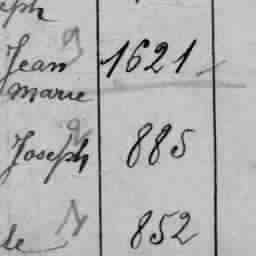 eph
Jean 1621
Marie
Joseph 885
le N 852